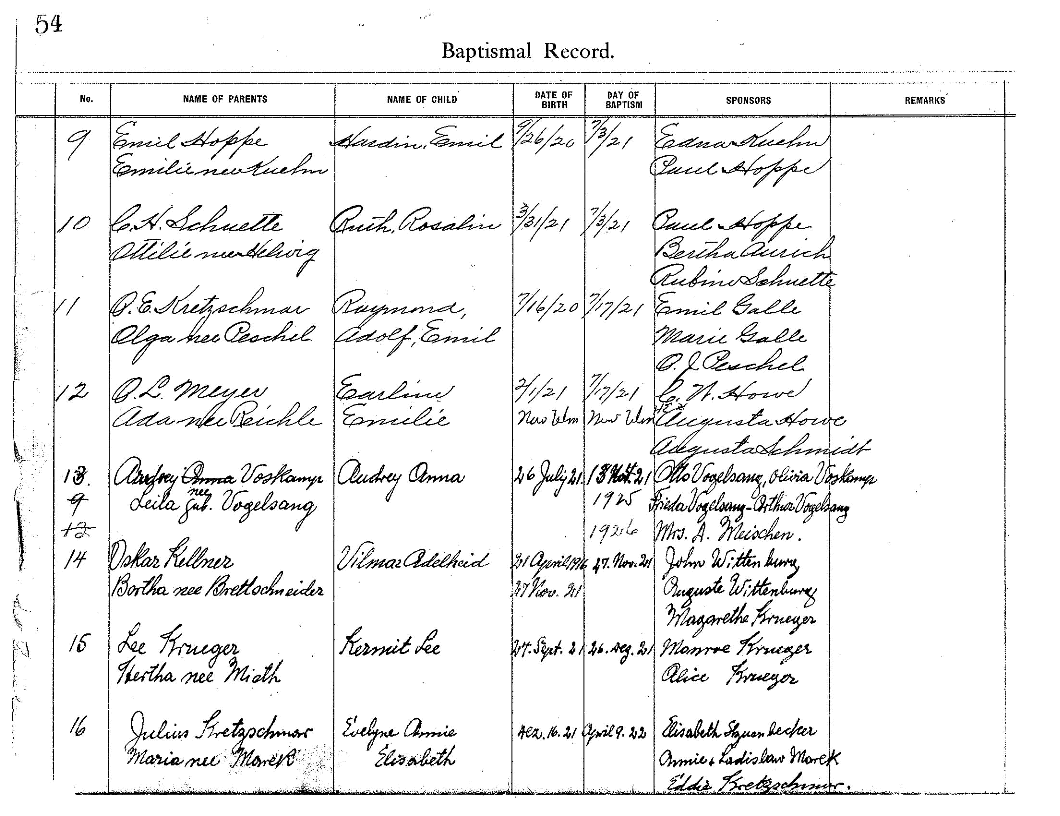 54
Baptismal Record.
No. NAME OF PARENTS NAME OF CHILD DATE OF BIRTH DAY OF BAPTISM SPONSORS REMARKS
9 Emil Hoppe Hardin, Emil 9/26/20 7/3/21 Edna Kuehn
Emilie nee Kuehn Paul Hoppe
10 C. H. Schuette Ruth, Rosalin 3/31/21 7/3/21 Paul Hoppe
Ottilie nee Helwig Bertha Aurich
Rubin Schuette
11 O. E. Kretzschmar Raymond, 7/16/20 7/17/21 Emil Galle
Olga nee Peschel Adolf, Emil Marie Galle
O. J. Peschel
12 O. L. Meyer Earline 2/1/21 7/17/21 C. W. Howe
Ada nee Reichle Emilie New Ulm New Ulm Augusta Howe
Augusta Schmidt
13. Audrey Anna Voskamp Audrey Anna 26 July 21 13 Nov. 21 Otto Vogelsang, Olivia Voskamp
9 Leila nee geb. Vogelsang 1925 Frieda Vogelsang - Arthur Vogelsang
12 1926 Mrs. A. Meischen.
14 Oskar Kellner Vilmar Adelheid 21 April 1916 27. Nov. 21 John Wittenburg
Bertha nee Brettschneider 27 Nov. 21 Auguste Wittenburg
Magarethe Krueger
15 Lee Krueger Kermit Lee 27. Sept. 21 26. Dez. 21 Monroe Krueger
Hertha nee Mieth Alice Krueger
16 Julius Kretzschmar Evelyne Annie Dez. 16. 21 April 9. 22 Elisabeth
Maria nee Marek Elisabeth Annie & Ladislaw Marek
Eddie Kretzschmar.